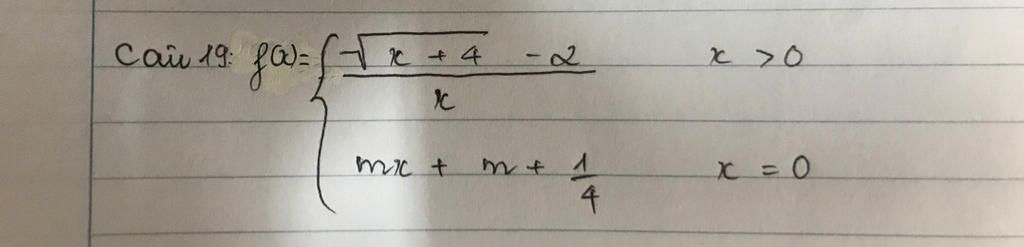 Câu 19: f(x) = { (√(x + 4) - 2) / x    x > 0
mx + m + 1/4    x = 0